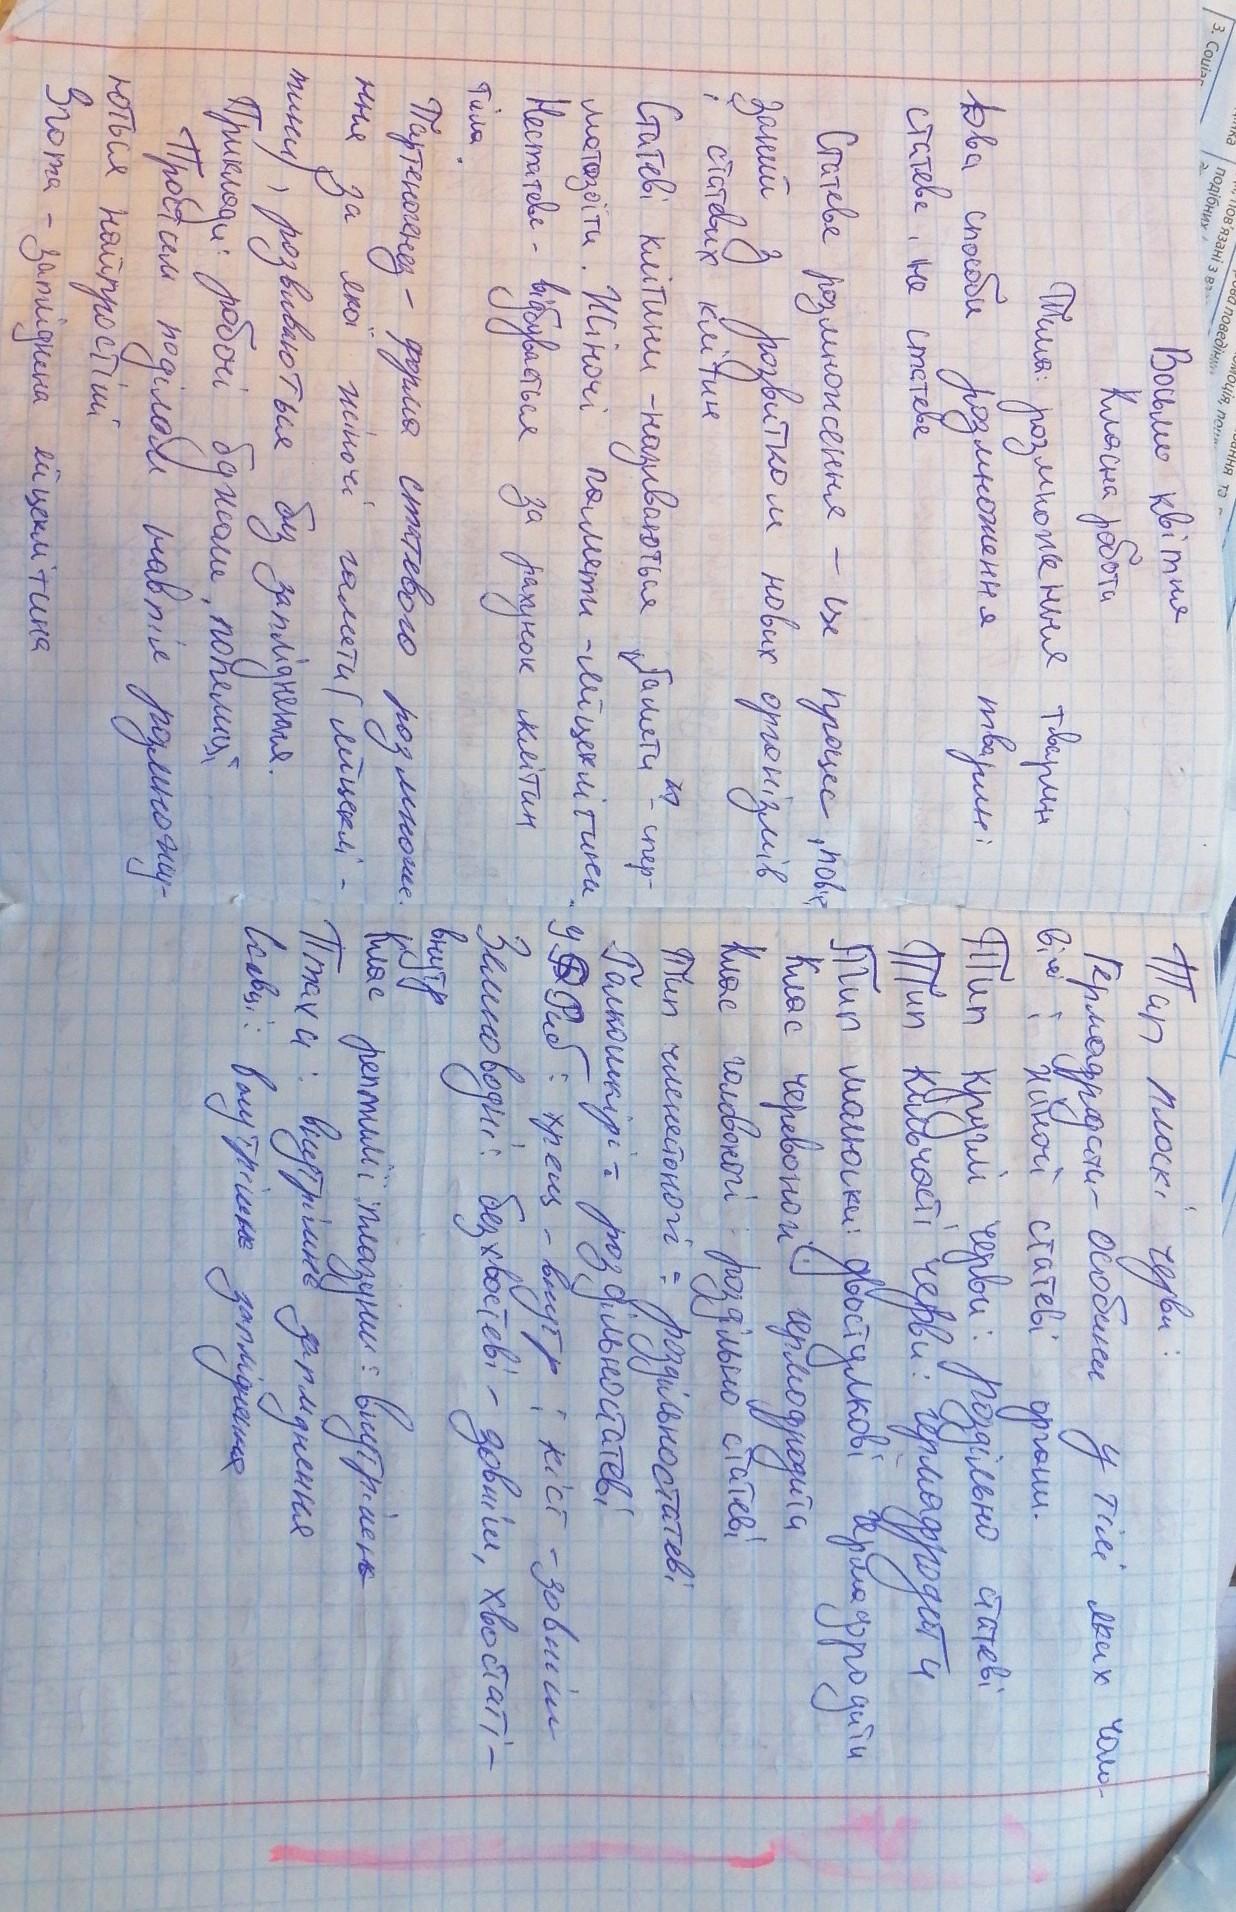 Восьме квітня
Класна робота
Тема: розмноження тварин
Два способи розмноження тварин:
статеве, не статеве
Статеве розмноження - це процес, пов'я
заний з розвитком нових організмів
і статевих клітин
Статеві клітини - називаються гамети - спер-
матозоїти. Жіночі гамети - яйцеклітини.
Нестатеве - відбувається за рахунок клітин
тіла.
Партеногенез - форма статевого розмноже.
ння за якої жіночі гамети (яйцеклі-
тини), розвиваються без запліднення.
Приклади: робочі бджоли, попелиці
Простим поділом навпіл розмножу-
ються найпростіші
Згота - запліднена яйцеклітина
Тип плоскі черви:
Гермадродити - особини у тілі яких чоло-
вічі і жіночі статеві органи.
Тип круглі черви: роздільно статеві
Тип кільчасті черви: гермадродити
Тип молюски: двостулкові гермадродити
Клас червоногі: гермодродити
Клас головоногі: роздільно статеві
Тип членистоногі: роздільностатеві
Голкошкірі: роздільностатеві
у Риб: хрящ - внутр і кіст - зовніш
Земноводні: безхвостеві - зовніш, хвостаті -
внутр
Клас рептилії плазуни: внутрішнє
Птахи: внутрішнє запліднення
Ссавці: внутрішнє запліднення
3. Соціал
подібних
пов'язані з в
ова поведінк